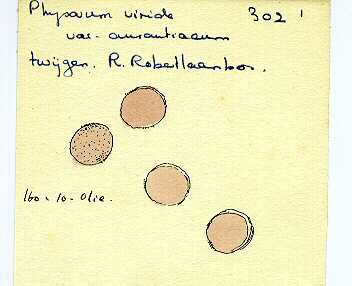 Physarum viride 302
var. aurantiacum
twijgen. R. Robellaerbos.
160 x 10. Olie.